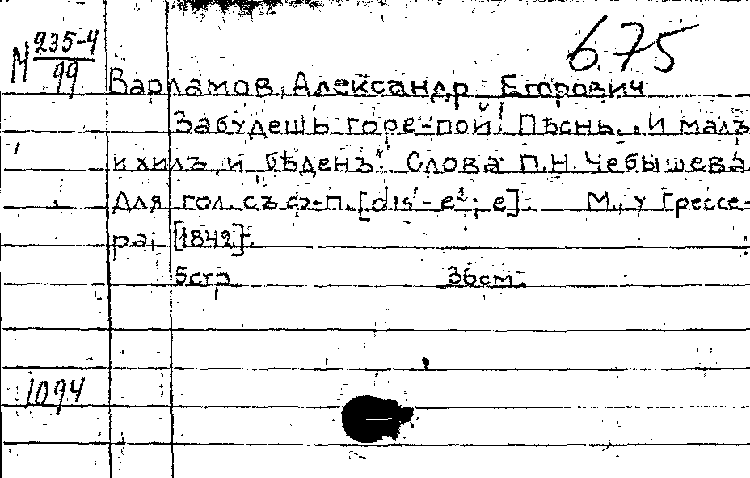 675
М 235-4
99
Варламов, Александр Егорович
Забудешь горе-пой! Пѣснь. "И малъ
и хилъ, и бѣденъ". Слова П.Н. Чебышева.
Для гол. съ ф-п. [dis¹-e²; e]. М., у Грессе-
ра, [1842].
5стр 36см.
1094